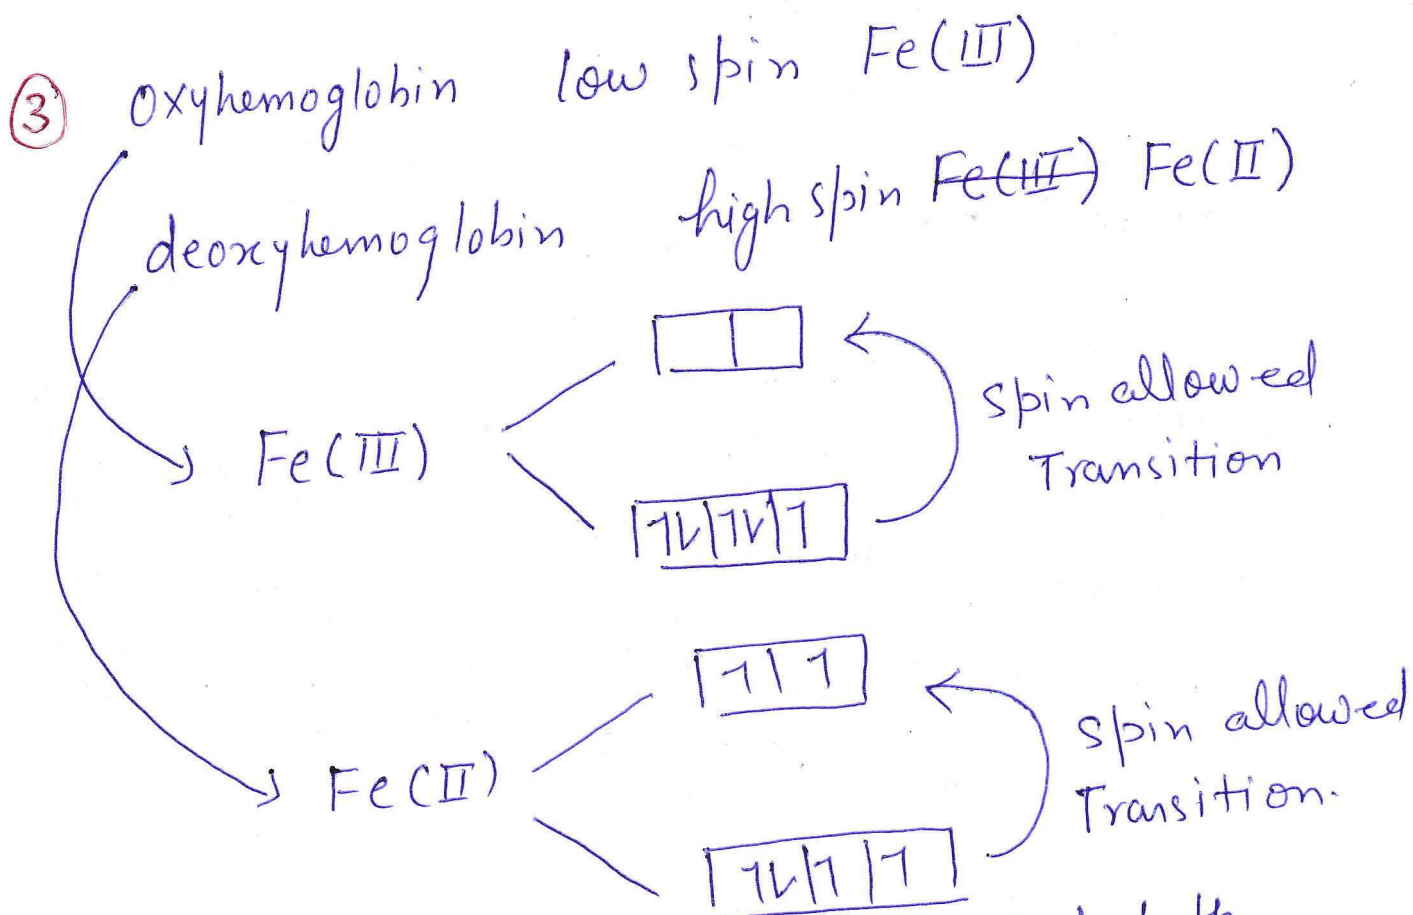 ③ oxyhemoglobin low spin Fe(III)
deoxyhemoglobin high spin Fe(III) Fe(II)
spin allowed
Transition
Fe(III)
1⇂|1⇂|1
1|1
spin allowed
Transition.
Fe(II)
1⇂|1|1